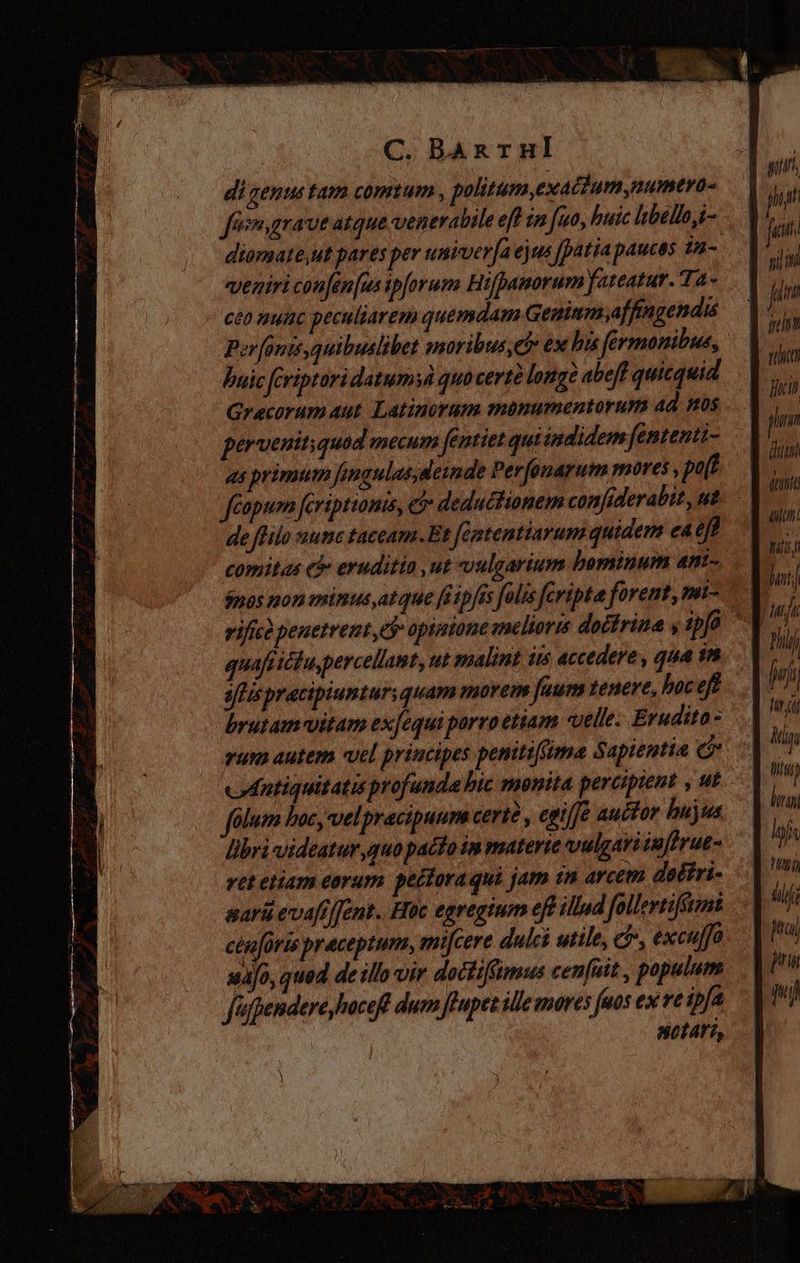 C. BARTHI
di genus tam comtum, politum, exactum, numero-
sum, grave atque venerabile est in suo, huic libello, i-
diomate, ut pares per universa ejus spatia paucos in-
veniri consensus ipsorum Hispanorum fateatur. Ta-
ceo nunc peculiarem quemdam Genium, affingendis
Personis, quibuslibet moribus, & ex his sermonibus,
huic scriptori datum; à quo certè longè abest quicquid
Græcorum aut Latinorum monumentorum ad nos
pervenit; quod mecum sentiet qui indidem sententi-
as primum singulas, deinde Personarum mores, post
scopum scriptionis, & deductionem considerabit, ut
de stilo nunc taceam. Et sententiarum quidem ea est
comitas & eruditio, ut vulgarium hominum ani-
mos non minus, atque si ipsis solis scripta forent, mi-
rificè penetrent, & opinione melioris doctrina, ipso
quasi ictu, percellant, ut malint iis accedere, qua in
istis præcipiuntur; quam morem suum tenere, hoc est
brutam vitam exsequi porro etiam velle. Erudito-
rum autem vel principes penitissima Sapientiæ &
Antiquitatis profunda hic monita percipient, ut
solum hoc, vel præcipuum certè, egisse auctor hujus
libri videatur, quo pacto in materie vulgari instrue-
ret etiam eorum pectora qui jam in arcem doctri-
narii evasissent. Hoc egregium est illud sollertissimi
censoris præceptum, miscere dulci utile, &, excusso
naso, quod de illo vir doctissimus censuit, populum
suspendere, hoc est dum stupet ille mores suos ex re ipsa
notari,